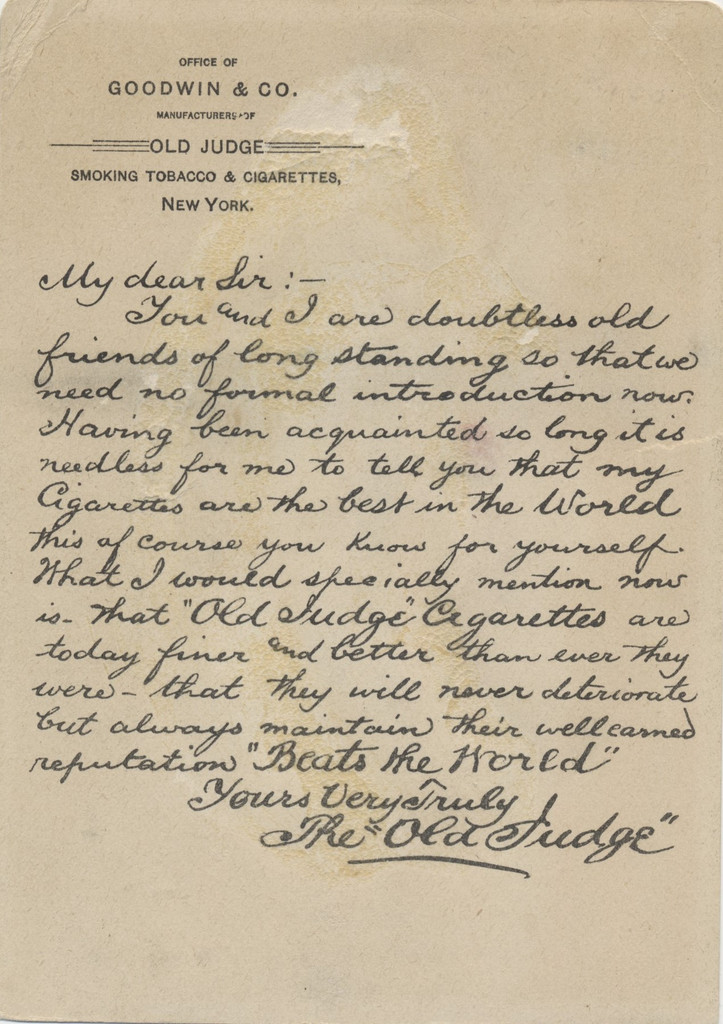 OFFICE OF
GOODWIN & CO.
MANUFACTURERS OF
OLD JUDGE
SMOKING TOBACCO & CIGARETTES,
NEW YORK.
My dear Sir :-
You and I are doubtless old
friends of long standing so that we
need no formal introduction now.
Having been acquainted so long it is
needless for me to tell you that my
Cigarettes are the best in the World
this of course you know for yourself.
What I would specially mention now
is - that "Old Judge" Cigarettes are
today finer and better than ever they
were - that they will never deteriorate
but always maintain their well earned
reputation "Beats the World"
Yours Very Truly
The "Old Judge"